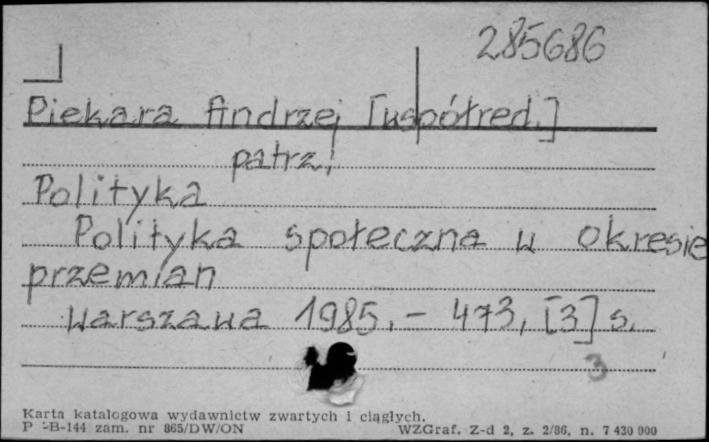 285686
Piekara Andrzej [współred.]
patrz:
Polityka
Polityka społeczna w okresie
przemian
Warszawa 1985. - 473, [3] s.
3
Karta katalogowa wydawnictw zwartych i ciągłych.
P -B-144 zam. nr 865/DW/ON WZGraf. Z-d 2, z. 2/86, n. 7 430 000